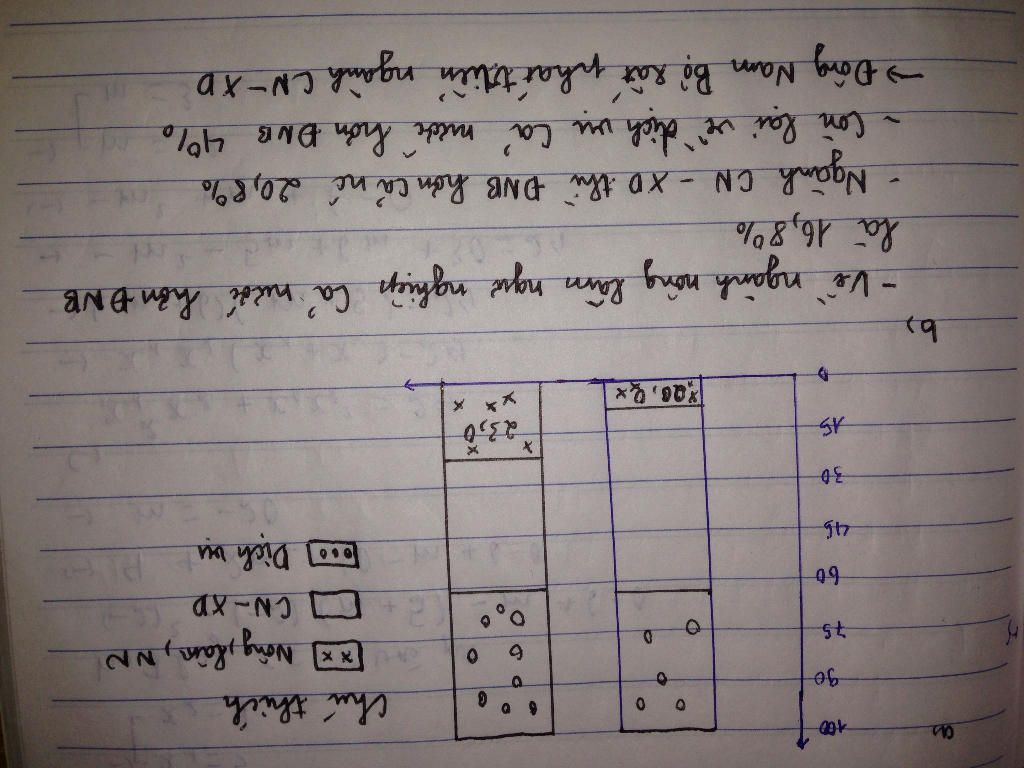 a)
100
90
75
60
45
30
15
0
23,0
Chú thích
Nông, Lâm, NN
CN - XD
Dịch vụ
b)
- Về ngành nông lâm ngư nghiệp Cả nước hơn ĐNB
là 16,8%
- Ngành CN - XD thì ĐNB hơn cả nc 20,8%
- Còn lại về dịch vụ Cả nước hơn ĐNB 4%
→ Đông Nam Bộ rất phát triển ngành CN - XD